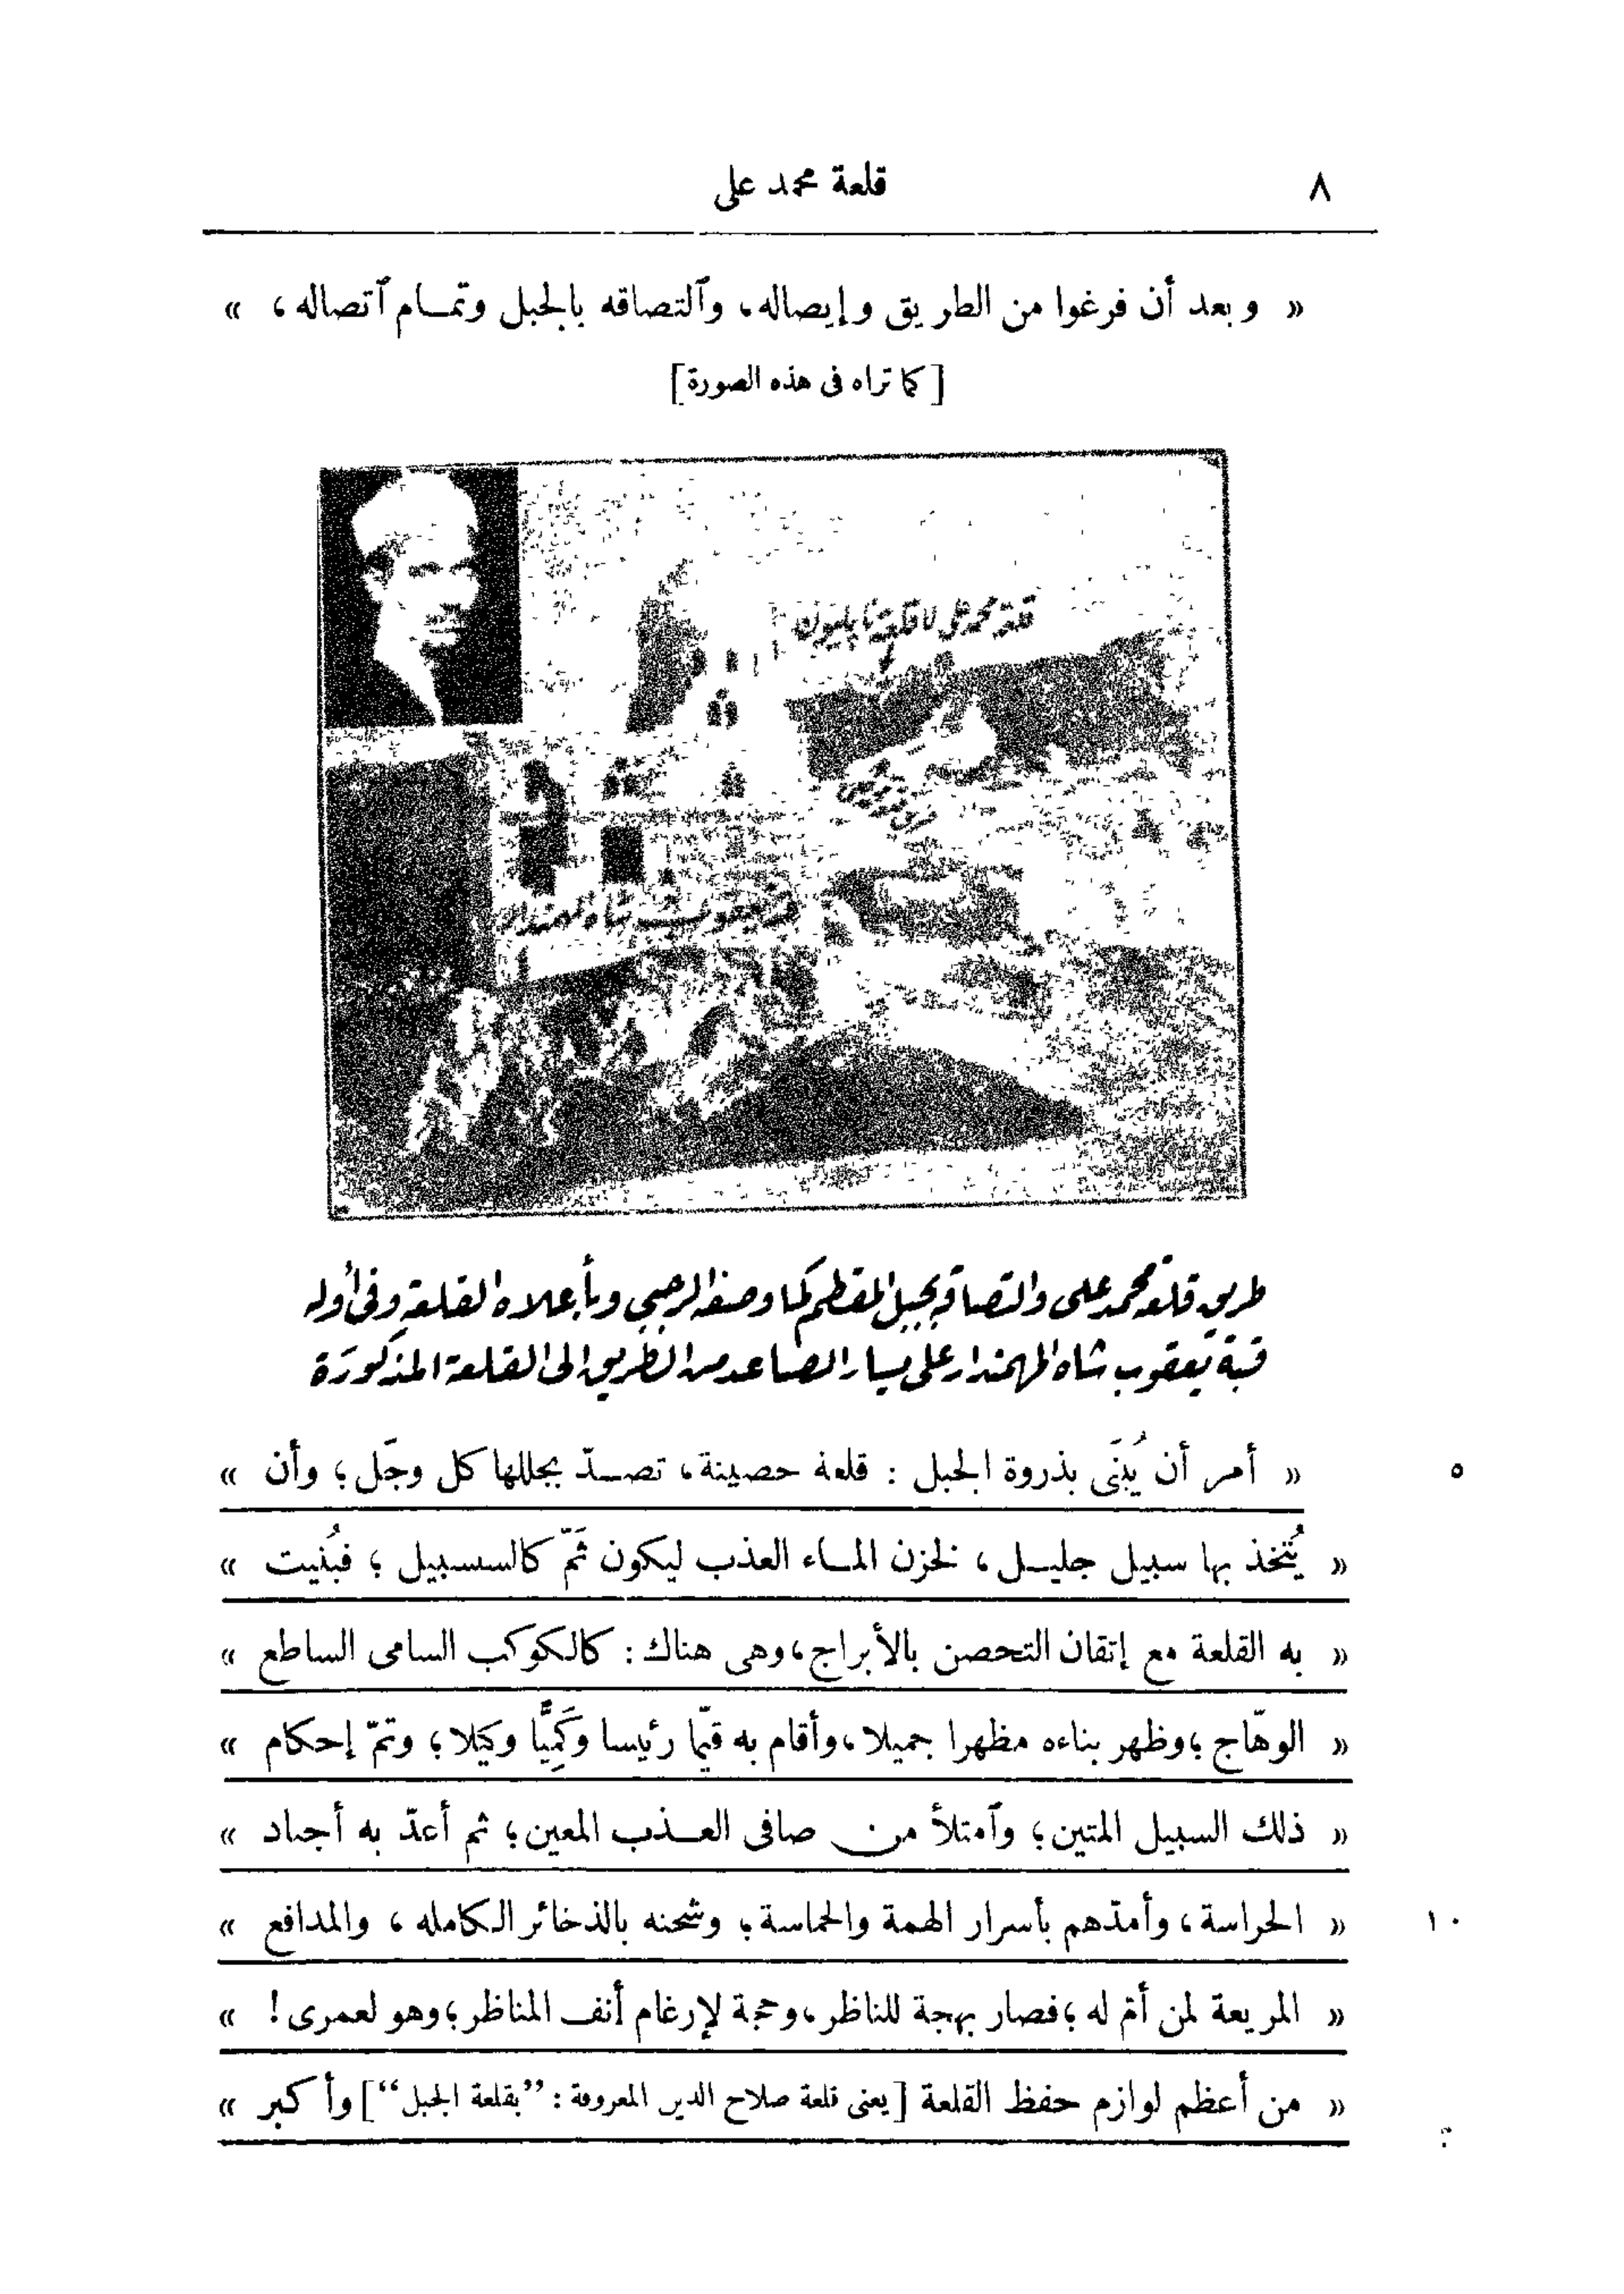 ٨ قلعة محمد على
« وبعد أن فرغوا من الطريق وإيصاله، وٱلتصاقه بالجبل وتمام ٱتصاله، »
[كما تراه فى هذه الصورة]
قلعة محمد على لا قلعة نابليون
قبة يعقوب شاه المهمندار
طريق قلعة محمد على والتصاقه بجبل المقطم كما وصفه الرجبى وبأعلاه القلعة وفى أوله
قبة يعقوب شاه المهمندار على يسار الصاعد من الطريق الى القلعة المذكورة
« أمر أن يُبنَى بذروة الجبل : قلعة حصينة، تصدّ بجللها كل وجَل؛ وأن » ٥
« يُتّخذ بها سبيل جليل، لخزن الماء العذب ليكون ثَمّ كالسسبيل؛ فبُنيت »
« به القلعة مع إتقان التحصن بالأبراج، وهى هناك: كالكوكب السامى الساطع »
« الوهّاج؛ وظهر بناءه مظهرا جميلا، وأقام به قيّما رئيسا وكَمِيًّا وكيلا؛ وتمّ إحكام »
« ذلك السبيل المتين؛ وٱمتلأ من صافى العذب المعين؛ ثم أعدّ به أجناد »
« الحراسة، وأمدّهم بأسرار الهمة والحماسة؛ وشحنه بالذخائر الكامله، والمدافع » ١٠
« المريعة لمن أمّ له؛ فصار بهجة للناظر، وحجة لإرغام أنف المناظر؛ وهو لعمرى! »
« من أعظم لوازم حفظ القلعة [يعنى قلعة صلاح الدين المعروفة: ”بقلعة الجبل“] وأكبر »